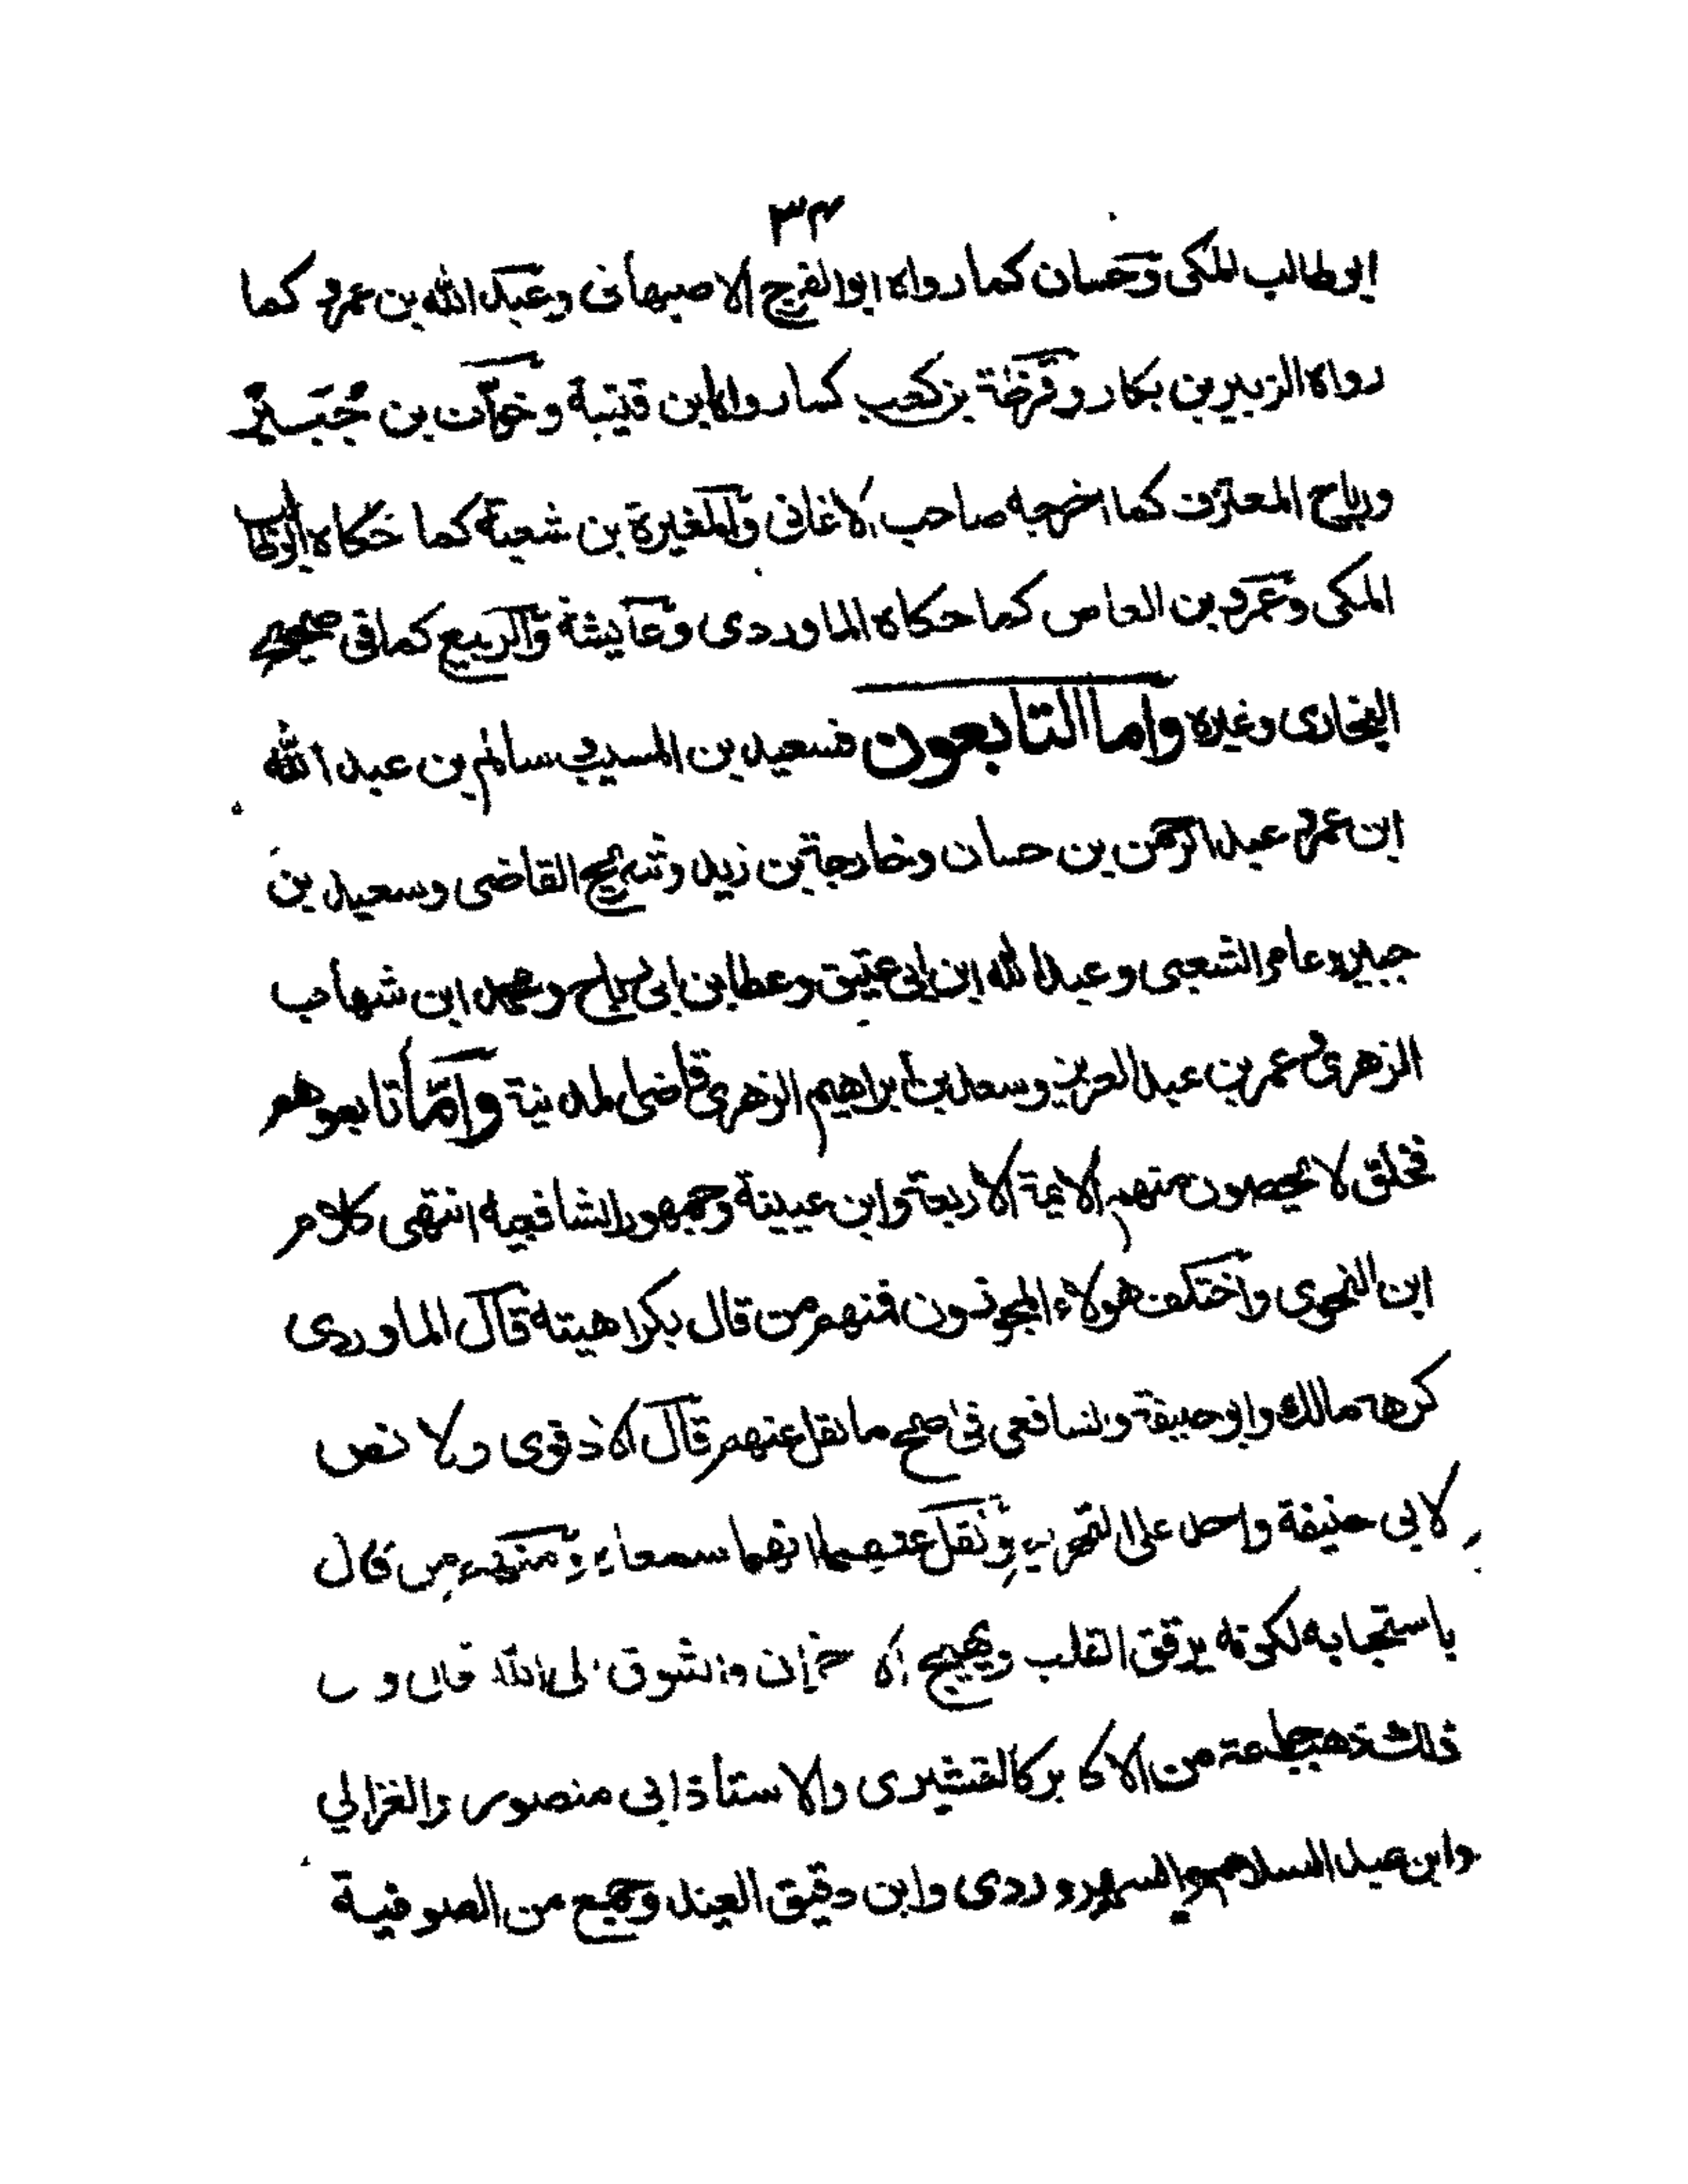 ٣٤
ابو طالب المكى وحسان كما رواه ابو الفرج الاصبهانى وعبد الله بن عمرو كما
رواه الزبير بن بكار وقرظة بن كعب كما رواه ابن قتيبة وخوات بن جبير
ورباح المعترف كما اخرجه صاحب الاغانى والمغيرة بن شعبة كما حكاه ابو طالب
المكى وعمرو بن العاص كما حكاه الماوردى وعايشة والربيع كما فى صحيح
البخارى وغيره واما التابعون فسعيد بن المسيب سالم بن عبد الله
ابن عمر و عبد الرحمن بن حسان وخارجة بن زيد وشريح القاضى وسعيد بن
جبير و عامر الشعبى وعبد الله ابن ابى عتيق وعطا بن ابى رباح ومحمد ابن شهاب
الزهرى وعمر بن عبد العزيز وسعد بن ابراهيم الزهرى قاضى المدينة واما تابعوهم
فخلق لا يحصون منهم الايمة الاربعة وابن عيينة وجمهور الشافعيه انتهى كلام
ابن النحوى واختلف هولاء المجوزون فمنهم من قال بكراهيته قال الماوردى
كرهه مالك وابو حنيفة والشافعى فى اصح ما نقل عنهم قال الاذقوى ولا نص
لابى حنيفة واحمد على التحريم ونقل عنهما انهما سمعاه ومنهم من قال
باستحبابه لكونه يرقق القلب ويهيج الاحزان والشوق الى الله قال و
ذلك ذهب جماعة من الاكابر كالقشيرى والاستاذ ابى منصور والغزالي
وابن عبد السلام والسهروردى وابن دقيق العيد وجمع من الصوفية